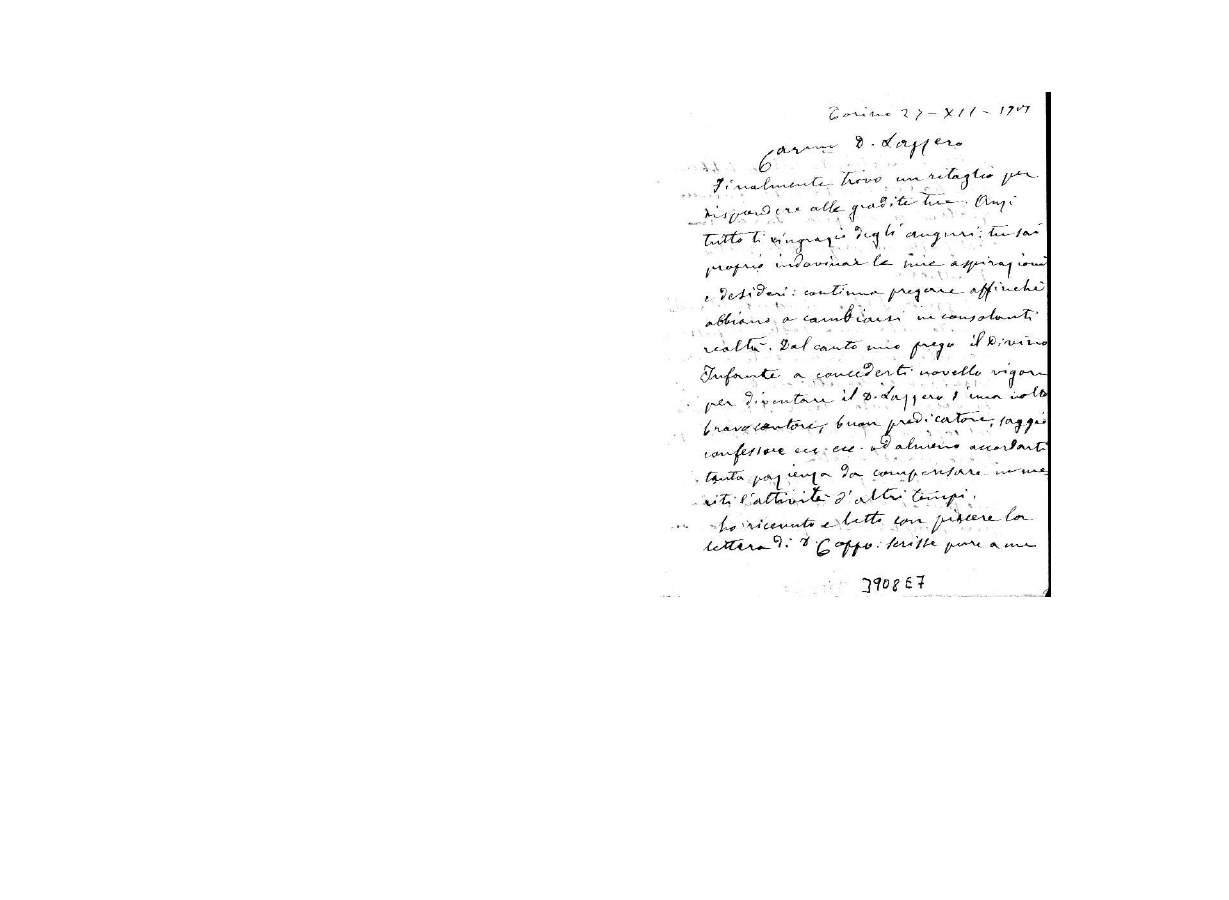 Torino 27-XII-1901
Car.mo D. Lazzero
Finalmente trovo un ritaglio per
rispondere alle gradite tue. Anzi
tutto ti ringrazio degli auguri: tu sai
proprio indovinar le mie aspirazioni
e desideri: continua pregare affinché
abbiano a cambiarsi in consolanti
realtà. Dal canto mio prego il Divino
Infante a concederti novello vigore
per diventare il D. Lazzero d'una volta
bravo cantore, buon predicatore, saggio
confessore ecc. ecc. od almeno accordarti
tanta pazienza da compensare in me
riti l'attività d'altri tempi.
ho ricevuto e letto con piacere la
lettera di D. Gappo: scrisse pure a me
3908E7